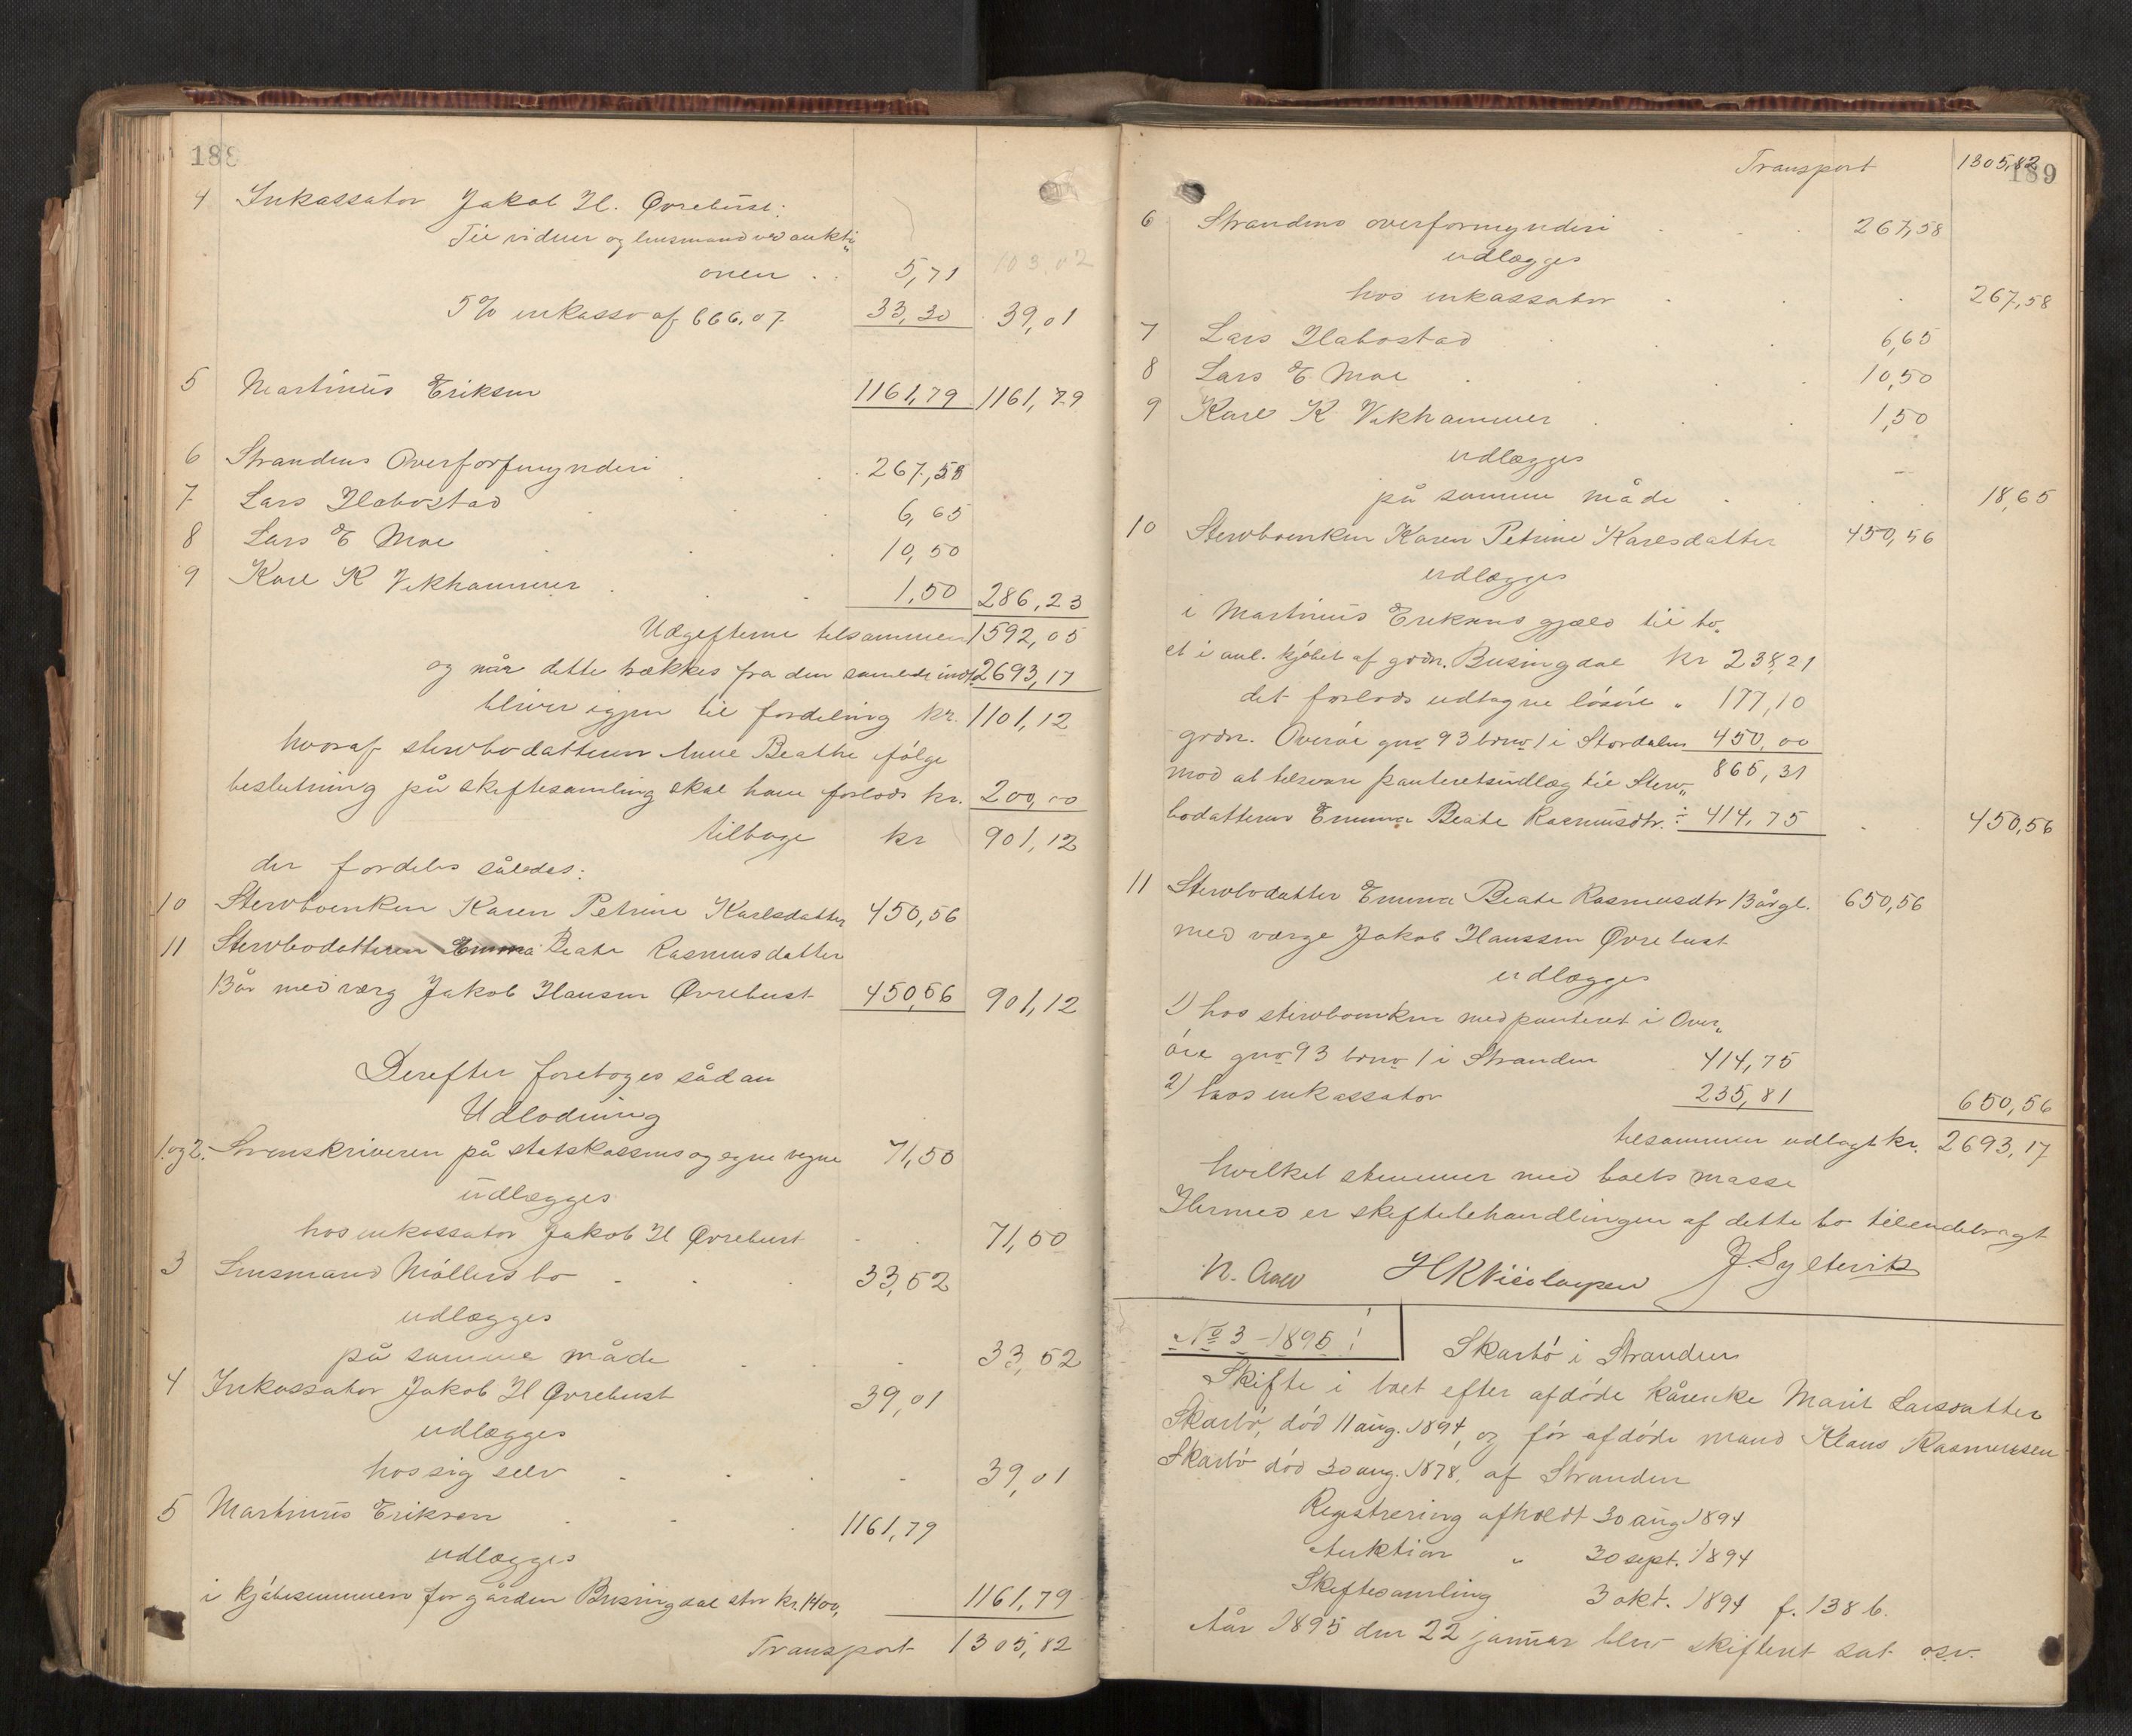 188
4 Inkassator Jakob H. Øvrebust:
Til vidner og lensmand ved aukti„
onen . . 5,71 103.02
5% inkasso af 666.07 33,30 39,01
5 Martinus Eriksen 1161,79 1161,79
6 Strandens Overforfmynderi 267,58
7 Lars Habostad 6,65
8 Lars E Moe 10,50
9 Karl K Vikhammer 1,50 286,23
Udgifterne tilsammen 1592,05
og når dette trækkes fra den samlede indt. 2693,17
bliver igjen til fordeling kr. 1101,12
hvoraf stervbodatteren Anne Beathe ifølge
beslutning på skiftesamling skal have forlods kr. 200,00
tilbage kr 901,12
der fordeles således:
10 Stervboenken Karen Petrine Karlsdatter 450,56
11 Stervbodatteren Emma Beate Rasmusdatter
13 år med værg Jakob Hansen Øvrebust 450,56 901,12
Derefter foretoges sådan
Udlodning
1 og 2. Sorenskriveren på statskassens og egne vegne 71,50
udlægges
hos inkassator Jakob H Øvrebust 71,50
3 Lensmand Møllers bo 33,52
udlægges
på samme måde 33,52
4 Inkassator Jakob H Øvrebust 39,01
udlægges
hos sig selv 39,01
5 Martinus Eriksen 1161,79
udlægges
i kjøbesummen for gården Busingdal stor kr. 1400, 1161,79
Transport 1305,82
189
Transport 1305,82
6 Strandens overformynderi 267,58
udlægges
hos inkassator 267,58
7 Lars Habostad 6,65
8 Lars E. Moe 10,50
9 Karl K Vikhammer 1,50
udlægges
på samme måde 18,65
10 Stervboenken Karen Petrine Karlsdatter 450,56
udlægges
i Martinus Eriksens gjæld til bo„
et i anl. kjøbet af grdn. Busingdal kr 238,21
det forlods udtagne løsøre „ 177,10
grdn. Overøie gno 93 brno 1 i Stordalen 450,00
865,31
mod at tilsvare panteretsudlæg til Sterv„
bodatteren Emma Beate Rasmusdtr. ÷ 414,75 450,56
11 Stervbodatter Emma Beate Rasmusdtr 13 årgl. 650,56
med værge Jakob Hanssen Øvrebust
udlægges
1) hos stervboenken med panteret i Over„
øie gno 93 brno 1 i Stranden 414,75
2) hos inkassator 235,81 650,56
tilsammen udlagt kr. 2693,17
hvilket stemmer med boets masse
Hermed er skiftebehandlingen af dette bo tilendebragt
N. Aall HKNicolaysen J. Syltevik
No 3 – 1895!
Skarbø i Stranden
Skifte i boet efter afdøde kårenke Marit Larsdatter
Skarbø, død 11 aug. 1894, og før afdøde mand Klaus Rasmussen
Skarbø død 30 aug. 1878, af Stranden
Registrering afholdt 30 aug 1894
Auktion „ 30 sept. 1894
Skiftesamling 3 okt. 1894 f. 138 b.
År 1895 den 22 januar blev skifteret sat osv.